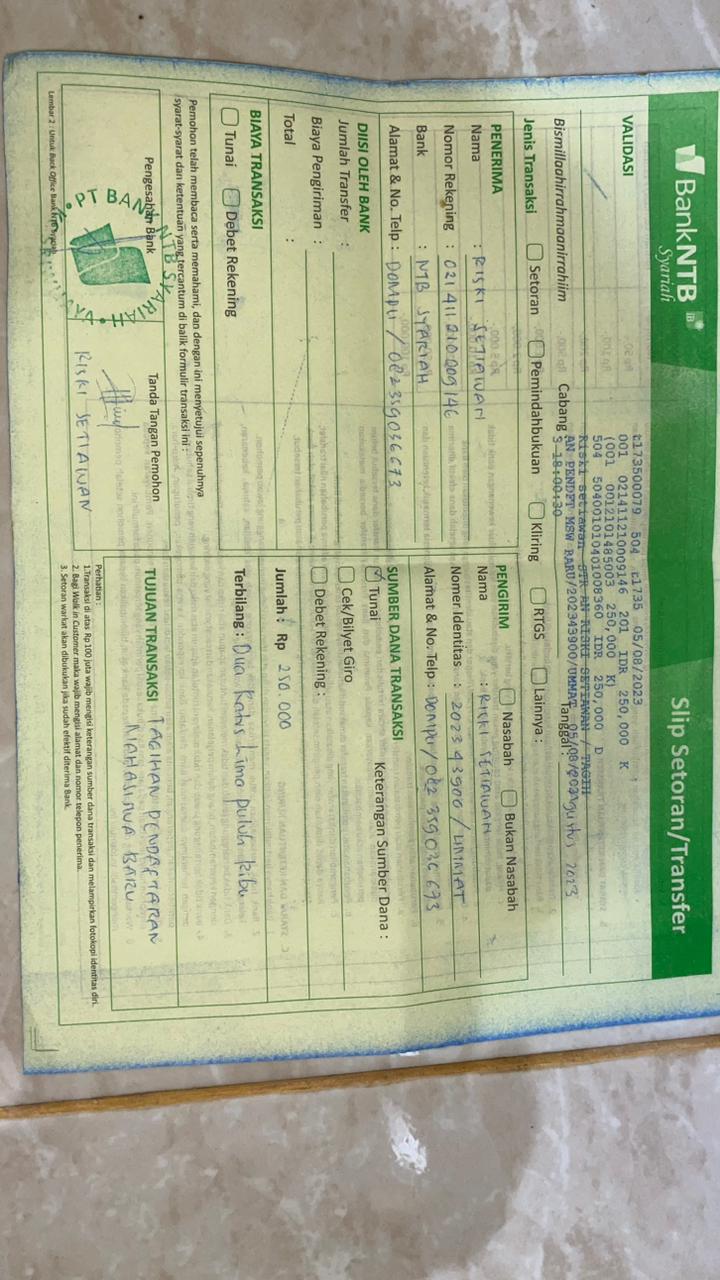 BankNTB
Syariah
Slip Setoran/Transfer
VALIDASI
t173500079 504 t1735 05/08/2023
001 021411210009146 201 IDR 250,000 K
(001 0012101485003 250,000 K)
504 504001010401008360 IDR 250,000 D
Riski setiawan STR AN RISKI SETIAWAN / TAGIH
AN PENDFT MSW BARU/202343900/UMMAT 05/08/202
3 18:00:30
Bismillaahirrahmaanirrahiim
Cabang
Tanggal: 2023
Jenis Transaksi Setoran Pemindahbukuan Kliring RTGS Lainnya :
PENERIMA
Nama : RISKI SETIAWAN
Nomor Rekening : 021 411 210 009 146
Bank : NTB SYARIAH
Alamat & No. Telp : DOMPU / 082359036673
PENGIRIM Nasabah Bukan Nasabah
Nama : RISKI SETIAWAN
Nomer Identitas : 202343900 / UMMAT
Alamat & No. Telp : DOMPU/082 359036 673
DIISI OLEH BANK
Jumlah Transfer :
Biaya Pengiriman :
Total :
SUMBER DANA TRANSAKSI
Tunai Keterangan Sumber Dana :
Cek/Bilyet Giro
Debet Rekening :
BIAYA TRANSAKSI
Tunai Debet Rekening
Jumlah : Rp 250.000
Terbilang : Dua Ratus Lima puluh Ribu
Pemohon telah membaca serta memahami, dan dengan ini menyetujui sepenuhnya
syarat-syarat dan ketentuan yang tercantum di balik formulir transaksi ini :
TUJUAN TRANSAKSI TAGIHAN PENDAFTARAN
MAHASISWA BARU
Pengesahan Bank
PT BANK NTB SYARIAH
Tanda Tangan Pemohon
RISKI SETIAWAN
Perhatian :
1.Transaksi di atas Rp 100 juta wajib mengisi keterangan sumber dana transaksi dan melampirkan fotokopi identitas diri.
2. Bagi Walk in Customer maka wajib mengisi alamat dan nomor telepon penerima.
3. Setoran warkat akan dibukukan jika sudah efektif diterima Bank.
Lembar 2 : Untuk Back Office Bank NTB Syariah